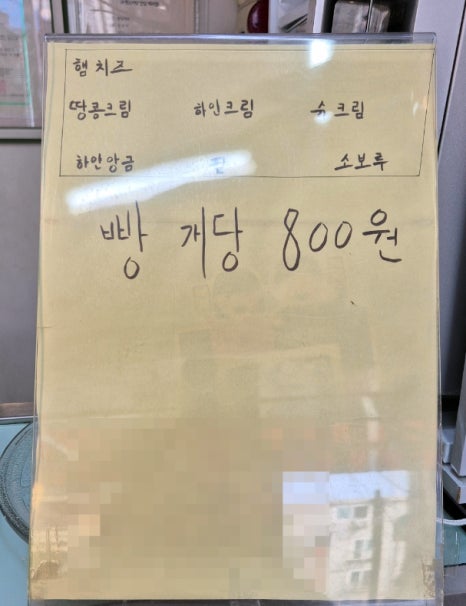 햄 치즈
땅콩크림 하얀크림 슈크림
하얀앙금 소보루
빵 개당 800원